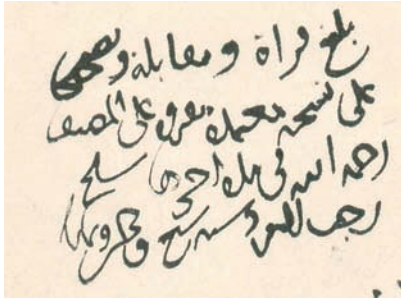 بلغ قراة ومقابلة وتصحيحا
على نسخة معتمدة مقروة على المصنف
رحمه الله في مدة اخرها سلخ
رجب الفرد سنة سبع